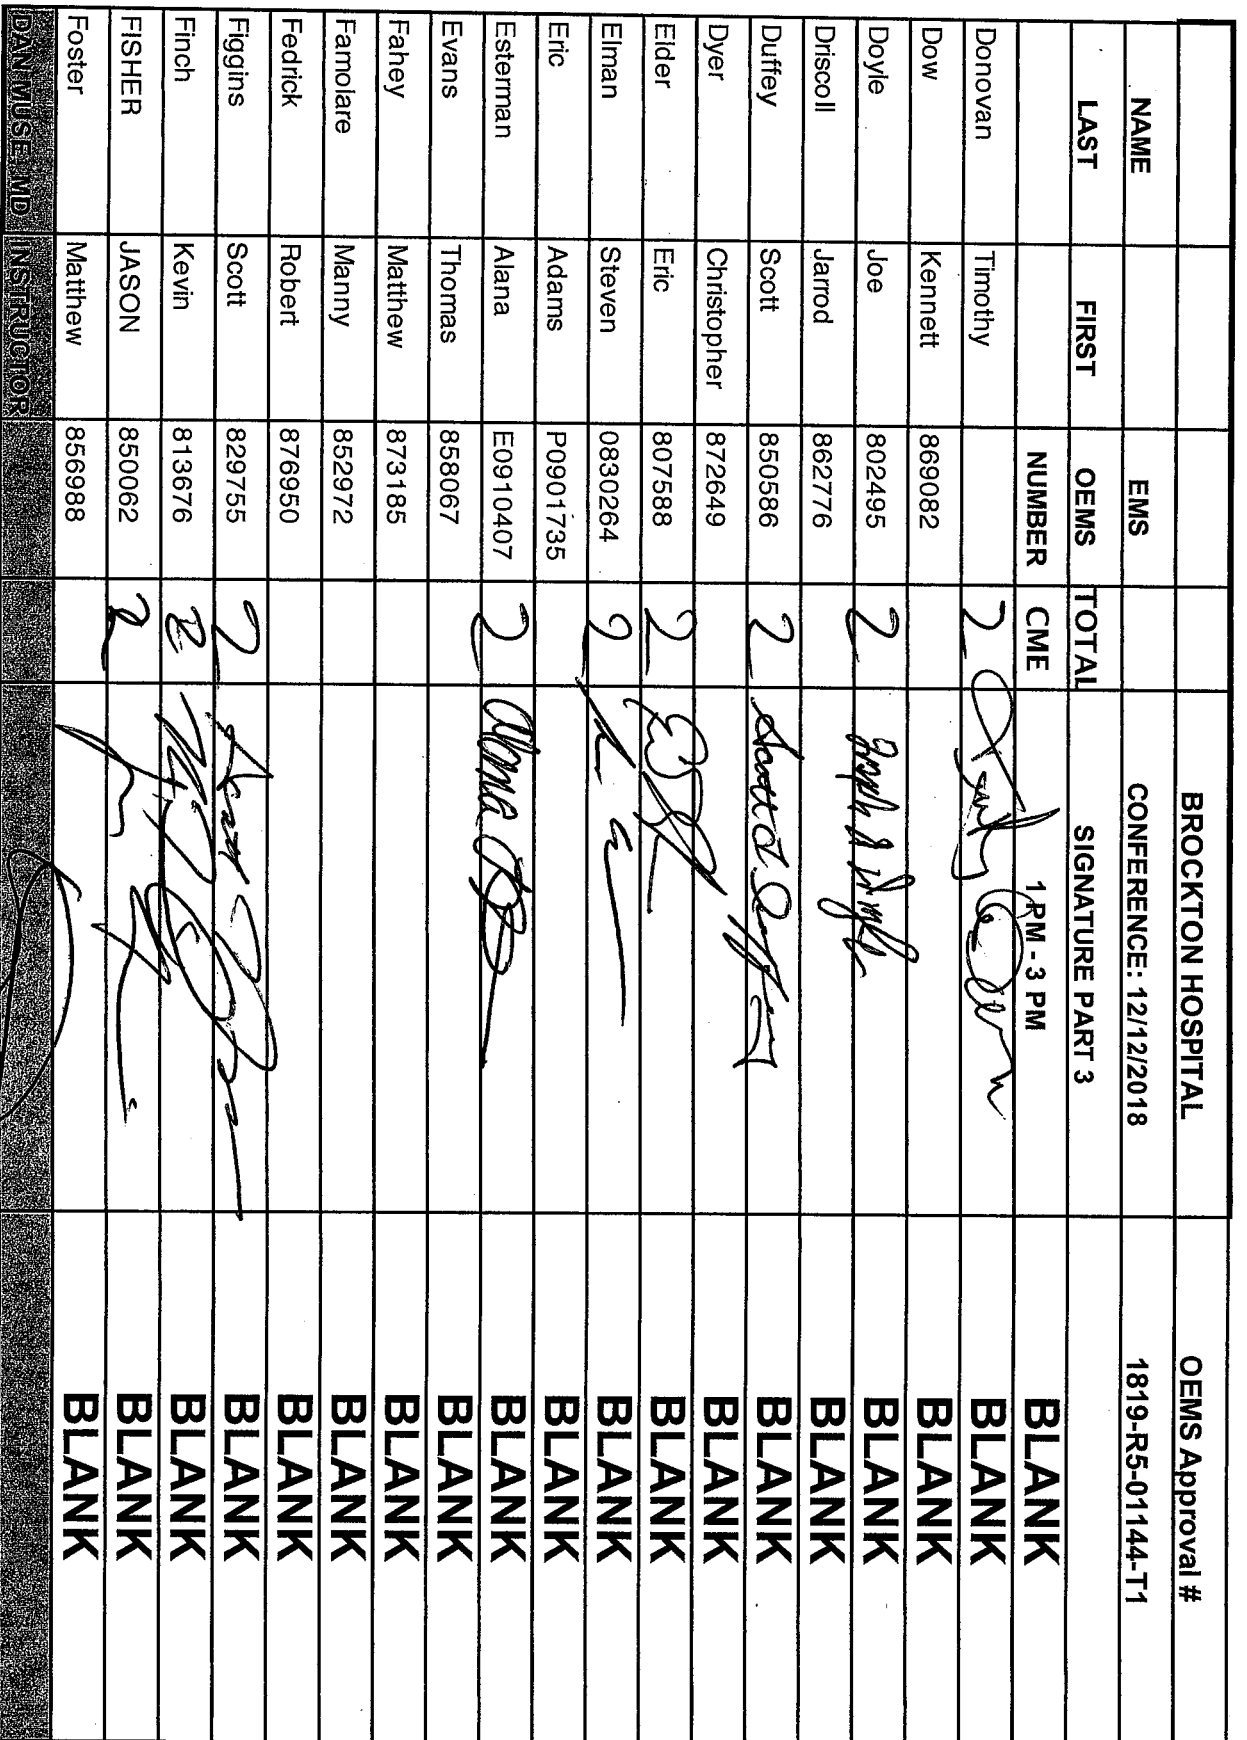 BROCKTON HOSPITAL OEMS Approval #
NAME EMS CONFERENCE: 12/12/2018 1819-R5-01144-T1
LAST FIRST OEMS TOTAL SIGNATURE PART 3
NUMBER CME 1 PM - 3 PM BLANK
Donovan Timothy 2 BLANK
Dow Kennett 869082 BLANK
Doyle Joe 802495 2 BLANK
Driscoll Jarrod 862776 BLANK
Duffey Scott 850586 2 Scott J. Duffey BLANK
Dyer Christopher 872649 BLANK
Elder Eric 807588 2 BLANK
Elman Steven 0830264 2 BLANK
Eric Adams P0901735 BLANK
Esterman Alana E0910407 2 Alana BLANK
Evans Thomas 858067 BLANK
Fahey Matthew 873185 BLANK
Famolare Manny 852972 BLANK
Fedrick Robert 876950 BLANK
Figgins Scott 829755 2 BLANK
Finch Kevin 813676 2 BLANK
FISHER JASON 850062 2 BLANK
Foster Matthew 856988 BLANK
DAN MUSE, MD INSTRUCTOR